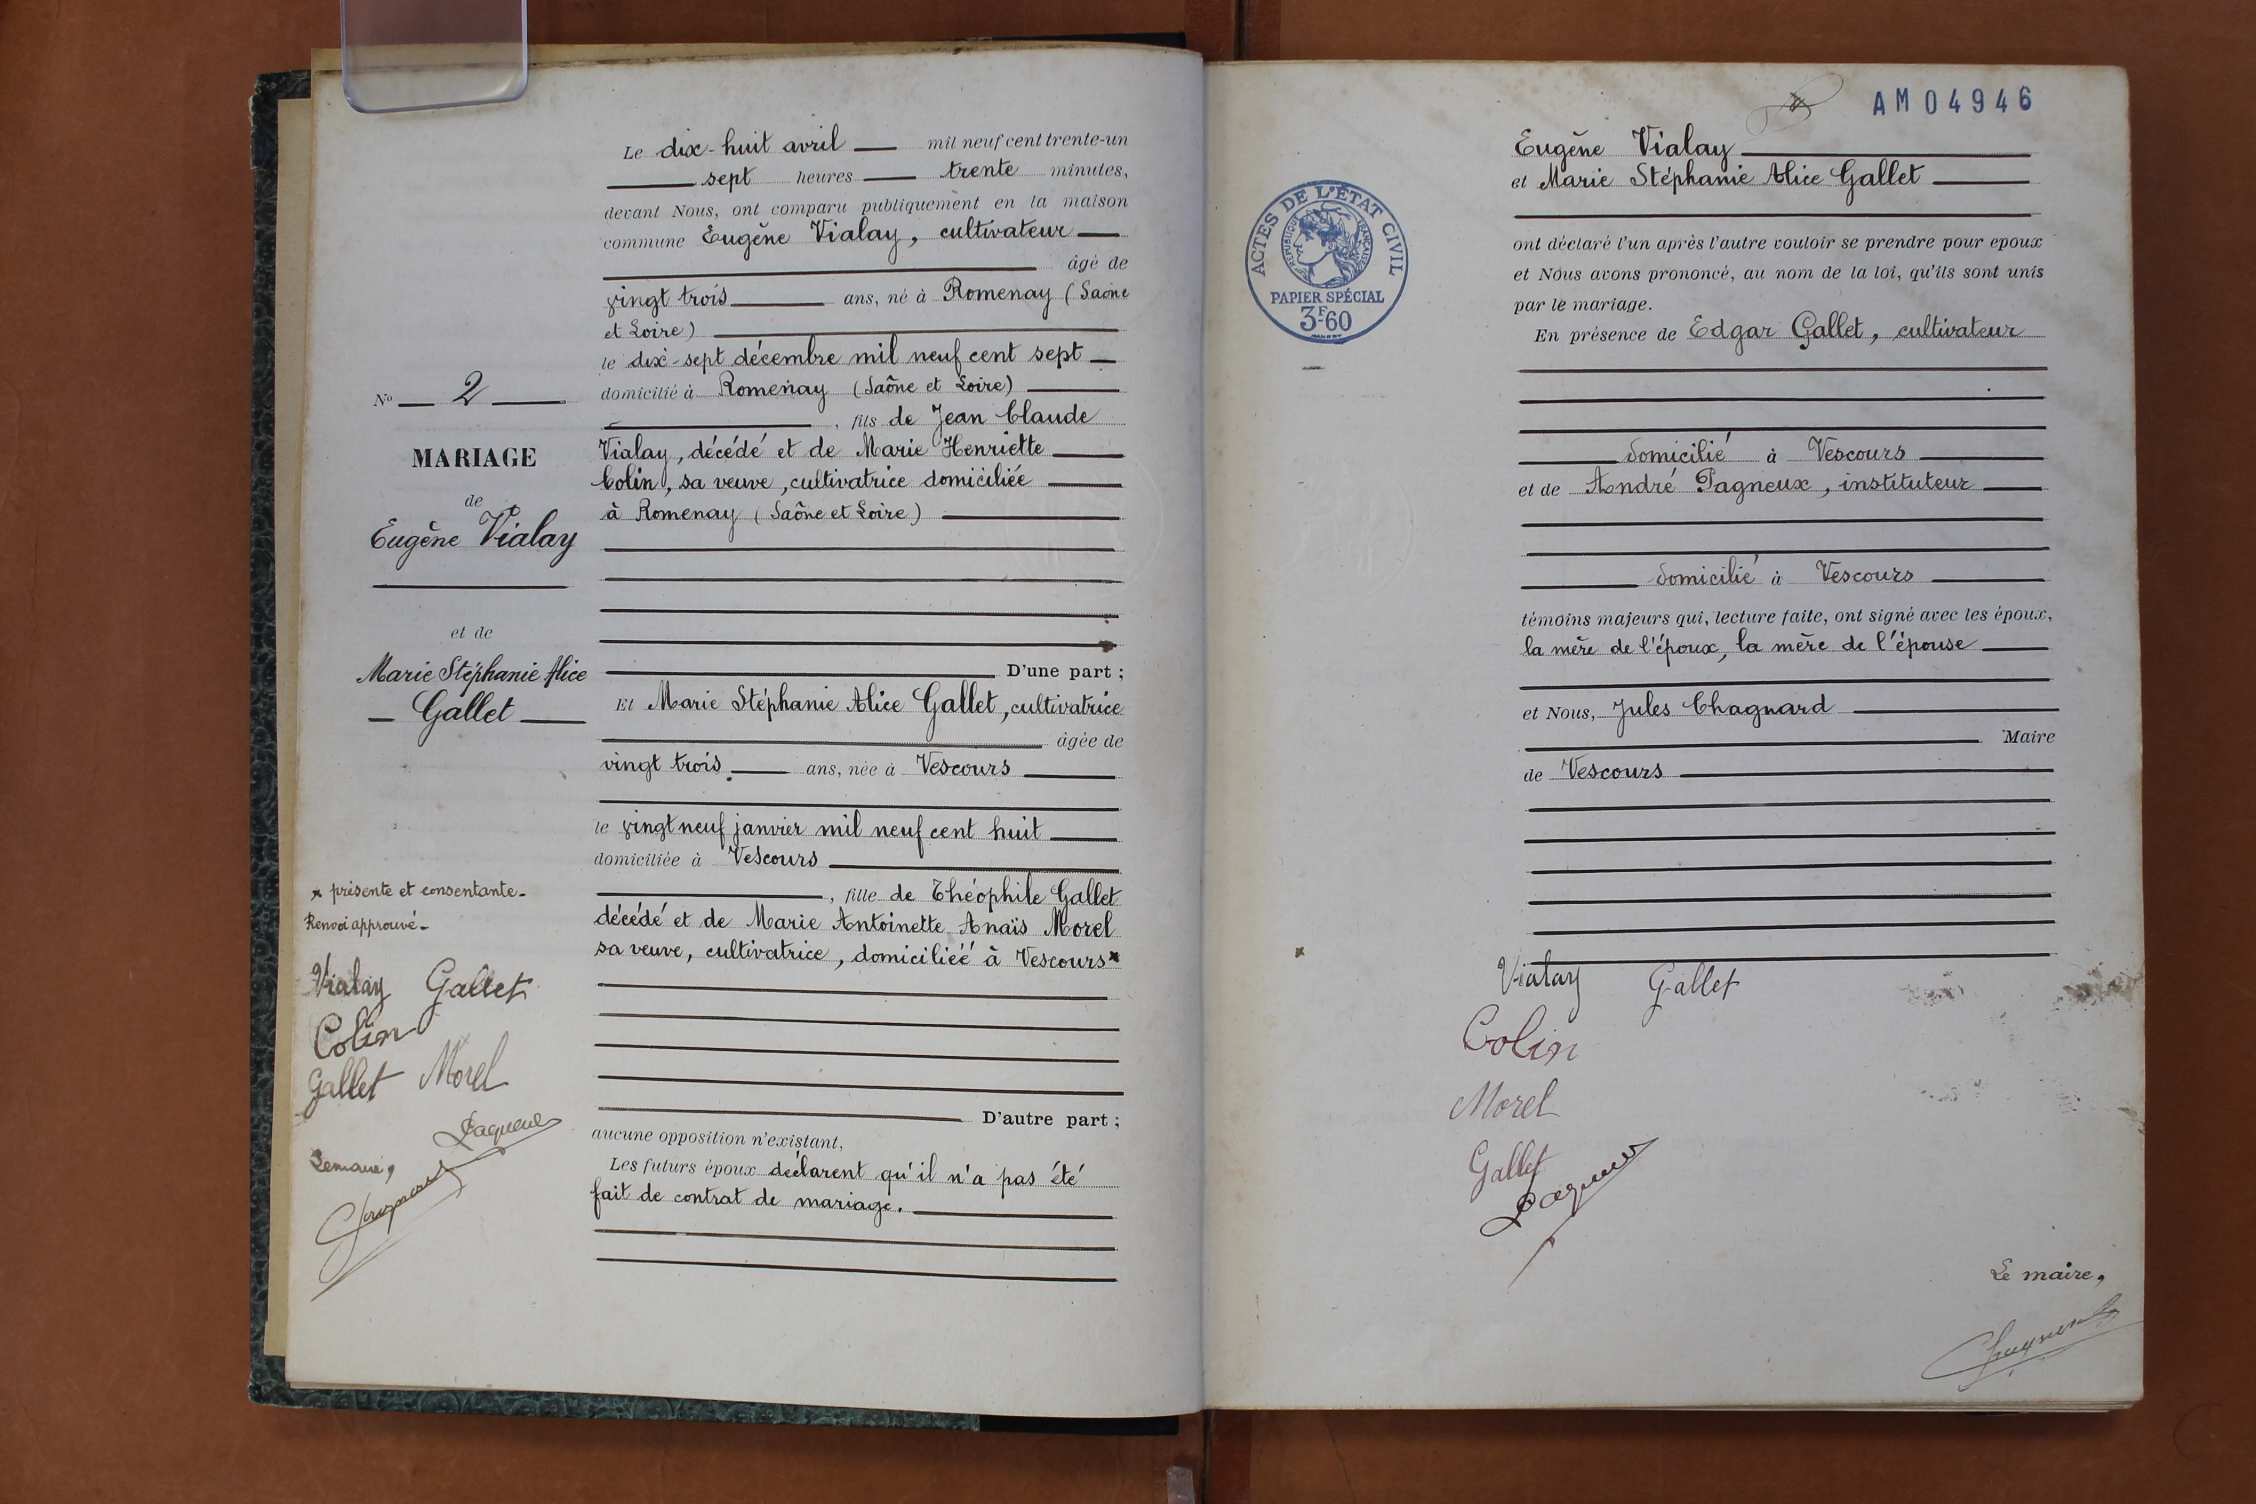 Le dix-huit avril mil neuf cent trente-un
sept heures trente minutes,
devant Nous, ont comparu publiquement en la maison
commune Eugène Vialay, cultivateur
âgé de
vingt trois ans, né à Romenay (Saône
et Loire)
le dix-sept décembre mil neuf cent sept
domicilié à Romenay (Saône et Loire)
, fils de Jean Claude
Vialay, décédé et de Marie Henriette
Colin, sa veuve, cultivatrice domiciliée
à Romenay (Saône et Loire)
D'une part ;
Et Marie Stéphanie Alice Gallet, cultivatrice
âgée de
vingt trois ans, née à Vescours
le vingt neuf janvier mil neuf cent huit
domiciliée à Vescours
, fille de Théophile Gallet
décédé et de Marie Antoinette Anaïs Morel
sa veuve, cultivatrice, domiciliéé à Vescours x
D'autre part ;
aucune opposition n'existant,
Les futurs époux déclarent qu'il n'a pas été
fait de contrat de mariage.
No 2
MARIAGE
de
Eugène Vialay
et de
Marie Stéphanie Alice
Gallet
x présente et consentante.
Renvoi approuvé.
Vialay Gallet
Colin
Gallet Morel
Pagneux
Le maire,
AM04946
Eugène Vialay
et Marie Stéphanie Alice Gallet
ACTES DE L'ÉTAT CIVIL
RÉPUBLIQUE FRANÇAISE
PAPIER SPÉCIAL
3F60
ont déclaré l'un après l'autre vouloir se prendre pour époux
et Nous avons prononcé, au nom de la loi, qu'ils sont unis
par le mariage.
En présence de Edgar Gallet, cultivateur
domicilié à Vescours
et de André Pagneux, instituteur
domicilié à Vescours
témoins majeurs qui, lecture faite, ont signé avec les époux,
la mère de l'époux, la mère de l'épouse
et Nous, Jules Chagnard
Maire
de Vescours
Vialay Gallet
Colin
Morel
Gallet
Pagneux
Le maire,